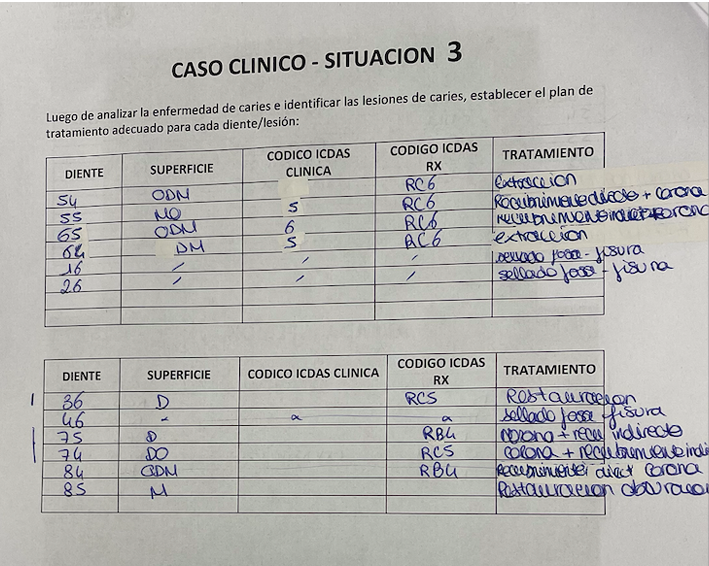 CASO CLINICO - SITUACION 3
Luego de analizar la enfermedad de caries e identificar las lesiones de caries, establecer el plan de
tratamiento adecuado para cada diente/lesión:
DIENTE SUPERFICIE CODICO ICDAS CLINICA CODIGO ICDAS RX TRATAMIENTO
54 ODM RC6 extraccion
55 MO 5 RC6 Recubrimiento directo + corona
65 ODM 6 RC6 recubrimiento indirecto corona
64 DM 5 RC6 extraccion
16 / / / sellado fosa - fisura
26 / / / sellado fosa - fisura
DIENTE SUPERFICIE CODICO ICDAS CLINICA CODIGO ICDAS RX TRATAMIENTO
36 D RC5 Restauracion
46 - a a sellado fosa fisura
75 D RB4 corona + recu indirecto
74 DO RC5 corona + recubrimiento indi
84 ODM RB4 recubrimiento direct corona
85 M Restauracion